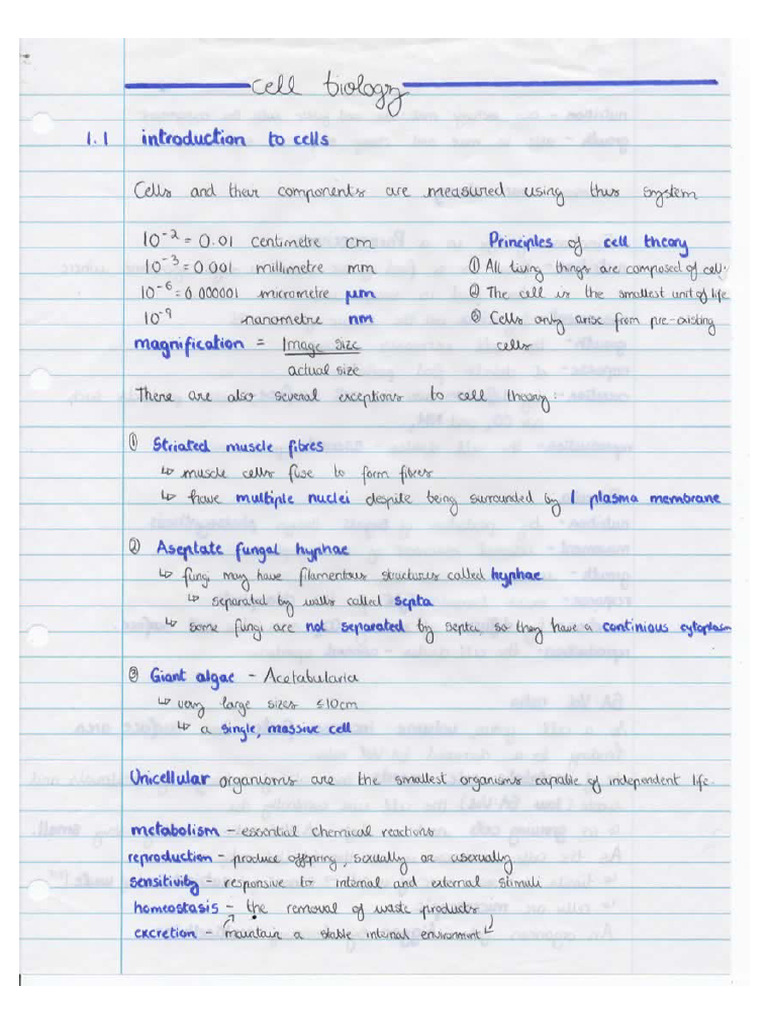 cell biology
1.1 introduction to cells
Cells and their components are measured using this system
10⁻² = 0.01 centimetre cm
10⁻³ = 0.001 millimetre mm
10⁻⁶ = 0.000001 micrometre μm
10⁻⁹ nanometre nm
Principles of cell theory
① All living things are composed of cells
② The cell is the smallest unit of life
③ Cells only arise from pre-existing
cells
magnification = Image size
actual size
There are also several exceptions to cell theory:
① Striated muscle fibres
↳ muscle cells fuse to form fibres
↳ have multiple nuclei despite being surrounded by 1 plasma membrane
② Aseptate fungal hyphae
↳ fungi may have filamentous structures called hyphae
↳ separated by walls called septa
↳ some fungi are not separated by septa, so they have a continious cytoplasm
③ Giant algae - Acetabularia
↳ very large sizes ≤10cm
↳ a single, massive cell
Unicellular organisms are the smallest organisms capable of independent life.
metabolism - essential chemical reactions
reproduction - produce offspring, sexually or asexually
sensitivity - responsive to internal and external stimuli
homeostasis - the removal of waste products
excretion - maintain a stable internal environment